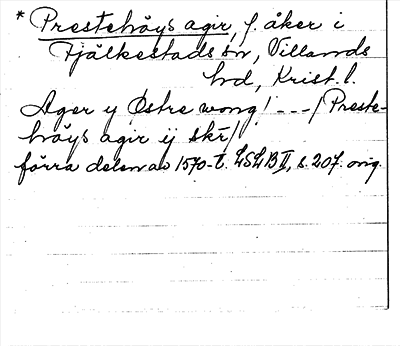 * Prestehöys agir, f. åker i
Fjälkestads sn, Villands
hd, Krist. l.
Ager y Østre wong! --- / Preste-
höys agir ij skr/
förra delen av 1570-t. LSLB II, s. 207. orig.